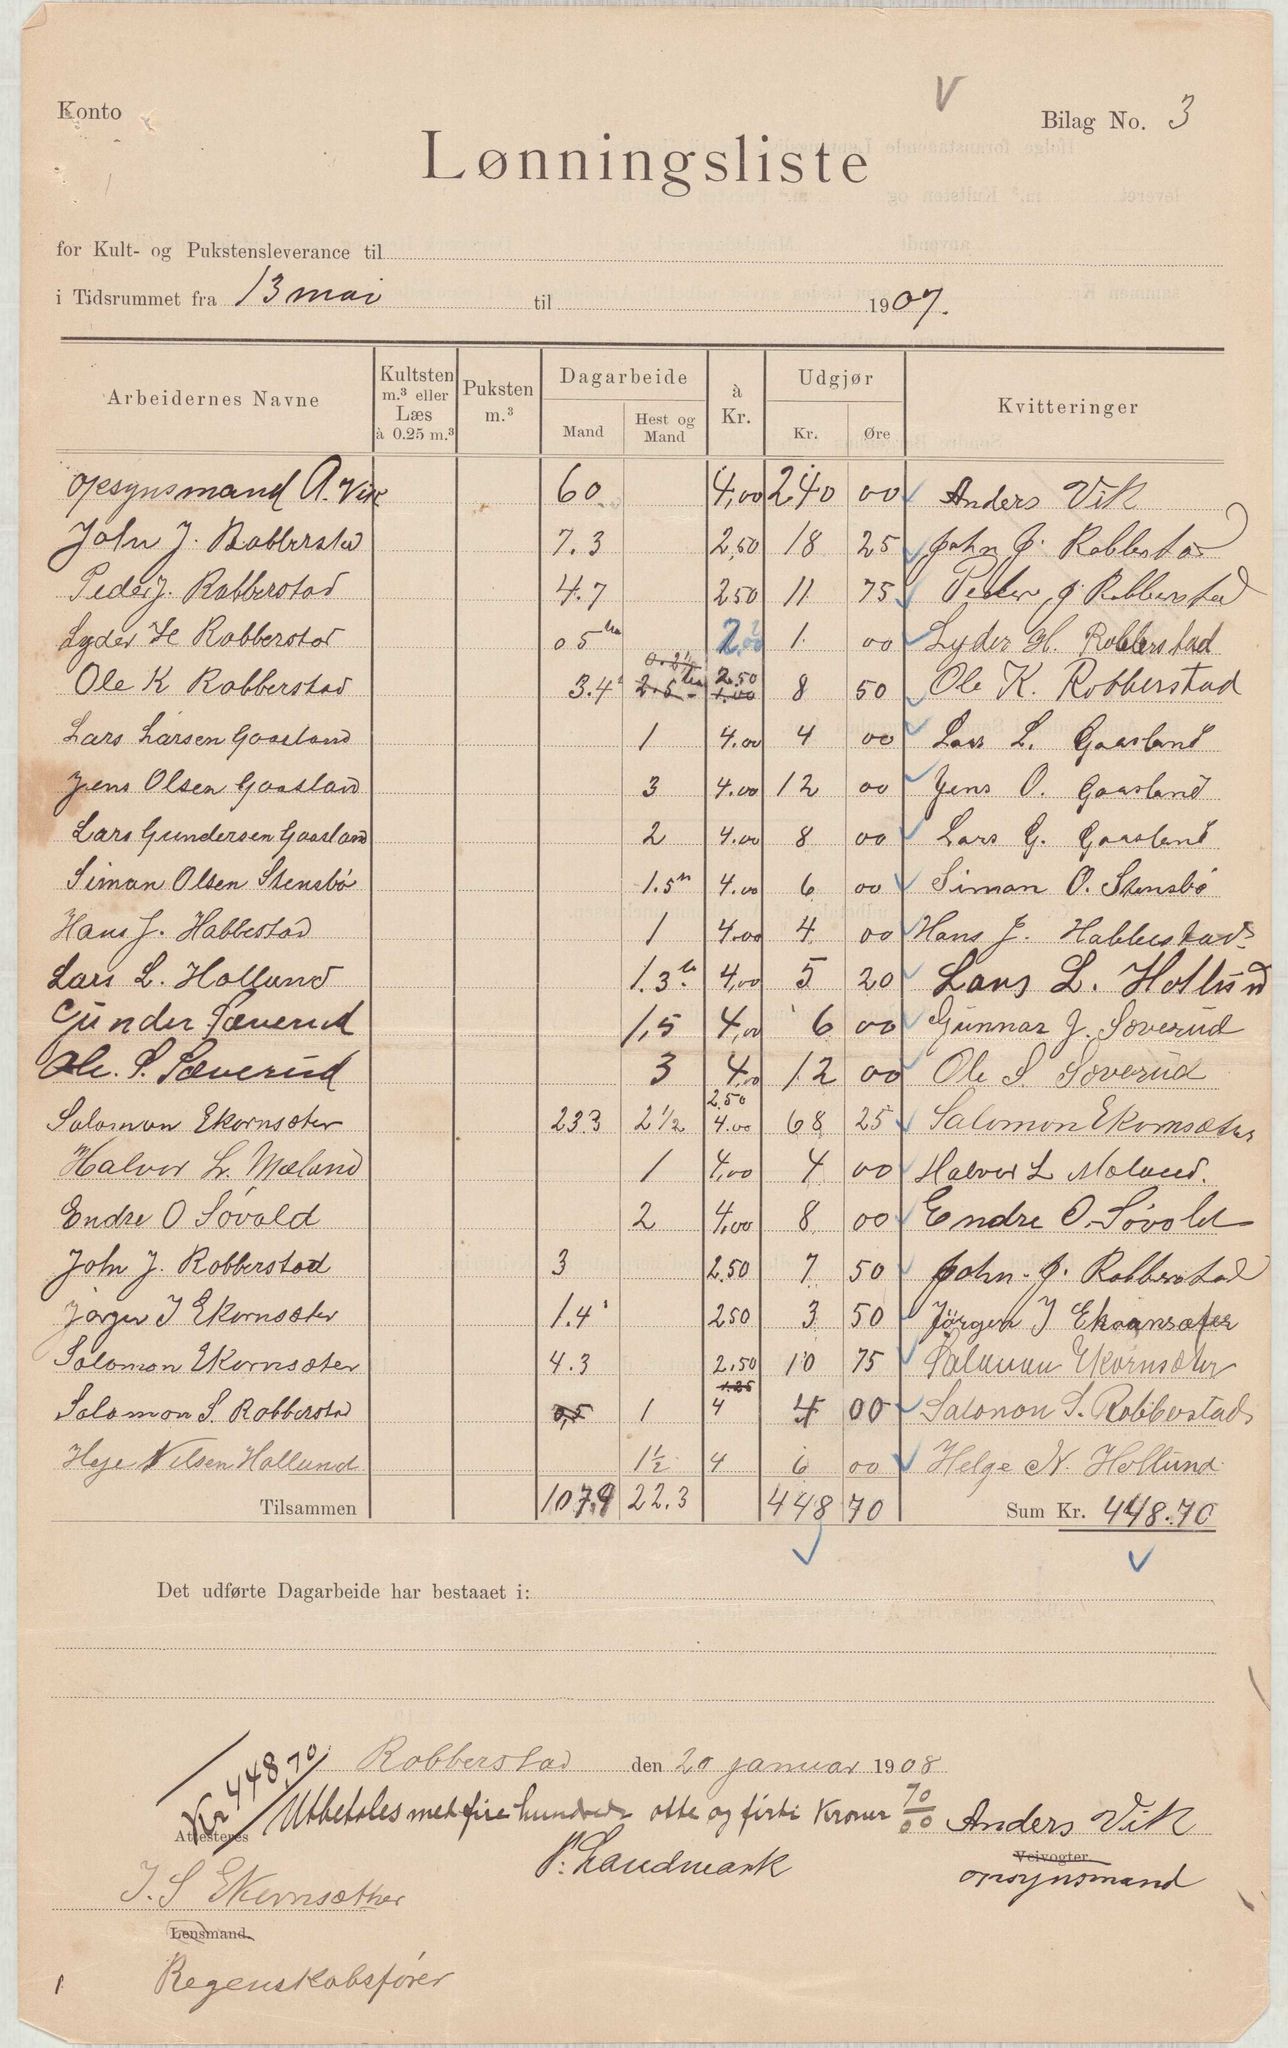 Konto
V
Bilag No. 3
Lønningsliste
for Kult- og Pukstensleverance til
i Tidsrummet fra 13 mai til 1907.
Arbeidernes Navne | Kultsten m.³ eller Læs à 0.25 m.³ | Puksten m.³ | Dagarbeide Mand | Hest og Mand | à Kr. | Udgjør Kr. | Øre | Kvitteringer
opsynsmand A. Vik 60 4,00 240 00 Anders Vik
John J. Robberstad 7.3 2,50 18 25 John J. Robberstad
Peder J. Robberstad 4.7 2 50 11 75 Peder J. Robberstad
Lyder H Robberstad 05 2,00 1. 00 Lyder H. Robberstad
Ole K Robberstad 3.4 2.50 1.00 8 50 Ole K. Robberstad
Lars Larsen Gaasland 1 4.00 4 00 Lars L. Gaasland
Jens Olsen Gaasland 3 4.00 12 00 Jens O. Gaasland
Lars Gundersen Gaasland 2 4.00 8 00 Lars G. Gaasland
Siman Olsen Stensbø 1.5 4.00 6 00 Siman O. Stensbø
Hans J. Habbestad 1 4.00 4 00 Hans J. Habbestad
Lars L. Hollund 1.3 4,00 5 20 Lars L. Hollund
Gunder Sæverud 1,5 4,00 6 00 Gunnar J. Sæverud
Ole. S. Sæverud 3 4,00 12 00 Ole S. Sæverud
Salomon Ekornsæter 23.3 2 1/2 2.50 4.00 68 25 Salomon Ekornsæter
Halvor L. Mæland 1 4,00 4 00 Halvor L Mæland.
Endre O Søvold 2 4,00 8 00 Endre O. Søvold
John J. Robberstad 3 2.50 7 50 John. J. Robberstad
Jørgen I Ekornsæter 1.4 250 3 50 Jörgen I Ekornsæter
Salomon Ekornsæter 4.3 2.50 10 75 Salomon Ekornsæter
Salomon S. Robberstad 0,5 1 1.25 4 4 00 Salomon S. Robberstad
Helge Nilsen Hollund 1 1/2 4 6 00 Helge N. Hollund
Tilsammen 107.9 22.3 448 70 Sum Kr. 448.70
Det udførte Dagarbeide har bestaaet i:
Robberstad den 20 januar 1908
Kr 448,70
Utbetales med fire hundrede otte og førti Kroner 70/00
Anders Vik
Attesteres
P. Landmark
Veivogter.
opsynsmand
J. S Ekornsæther
Lensmand.
Regenskabsfører
1